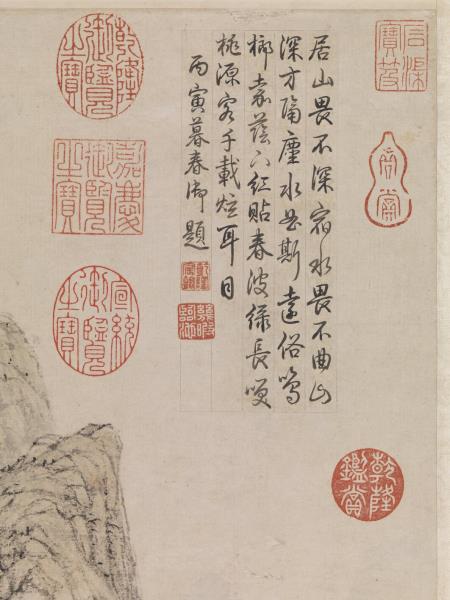 石渠寶笈
居山畏不深宿水畏不曲山
深方隔塵水曲斯遠俗鳴
榔嘉蔭下紅貼春波綠長咲
桃源客千載炫耳目
丙寅暮春御題
乾隆宸翰
幾暇臨池
乾隆鑑賞
乾隆御覽之寶
嘉慶御覽之寶
宣統御覽之寶